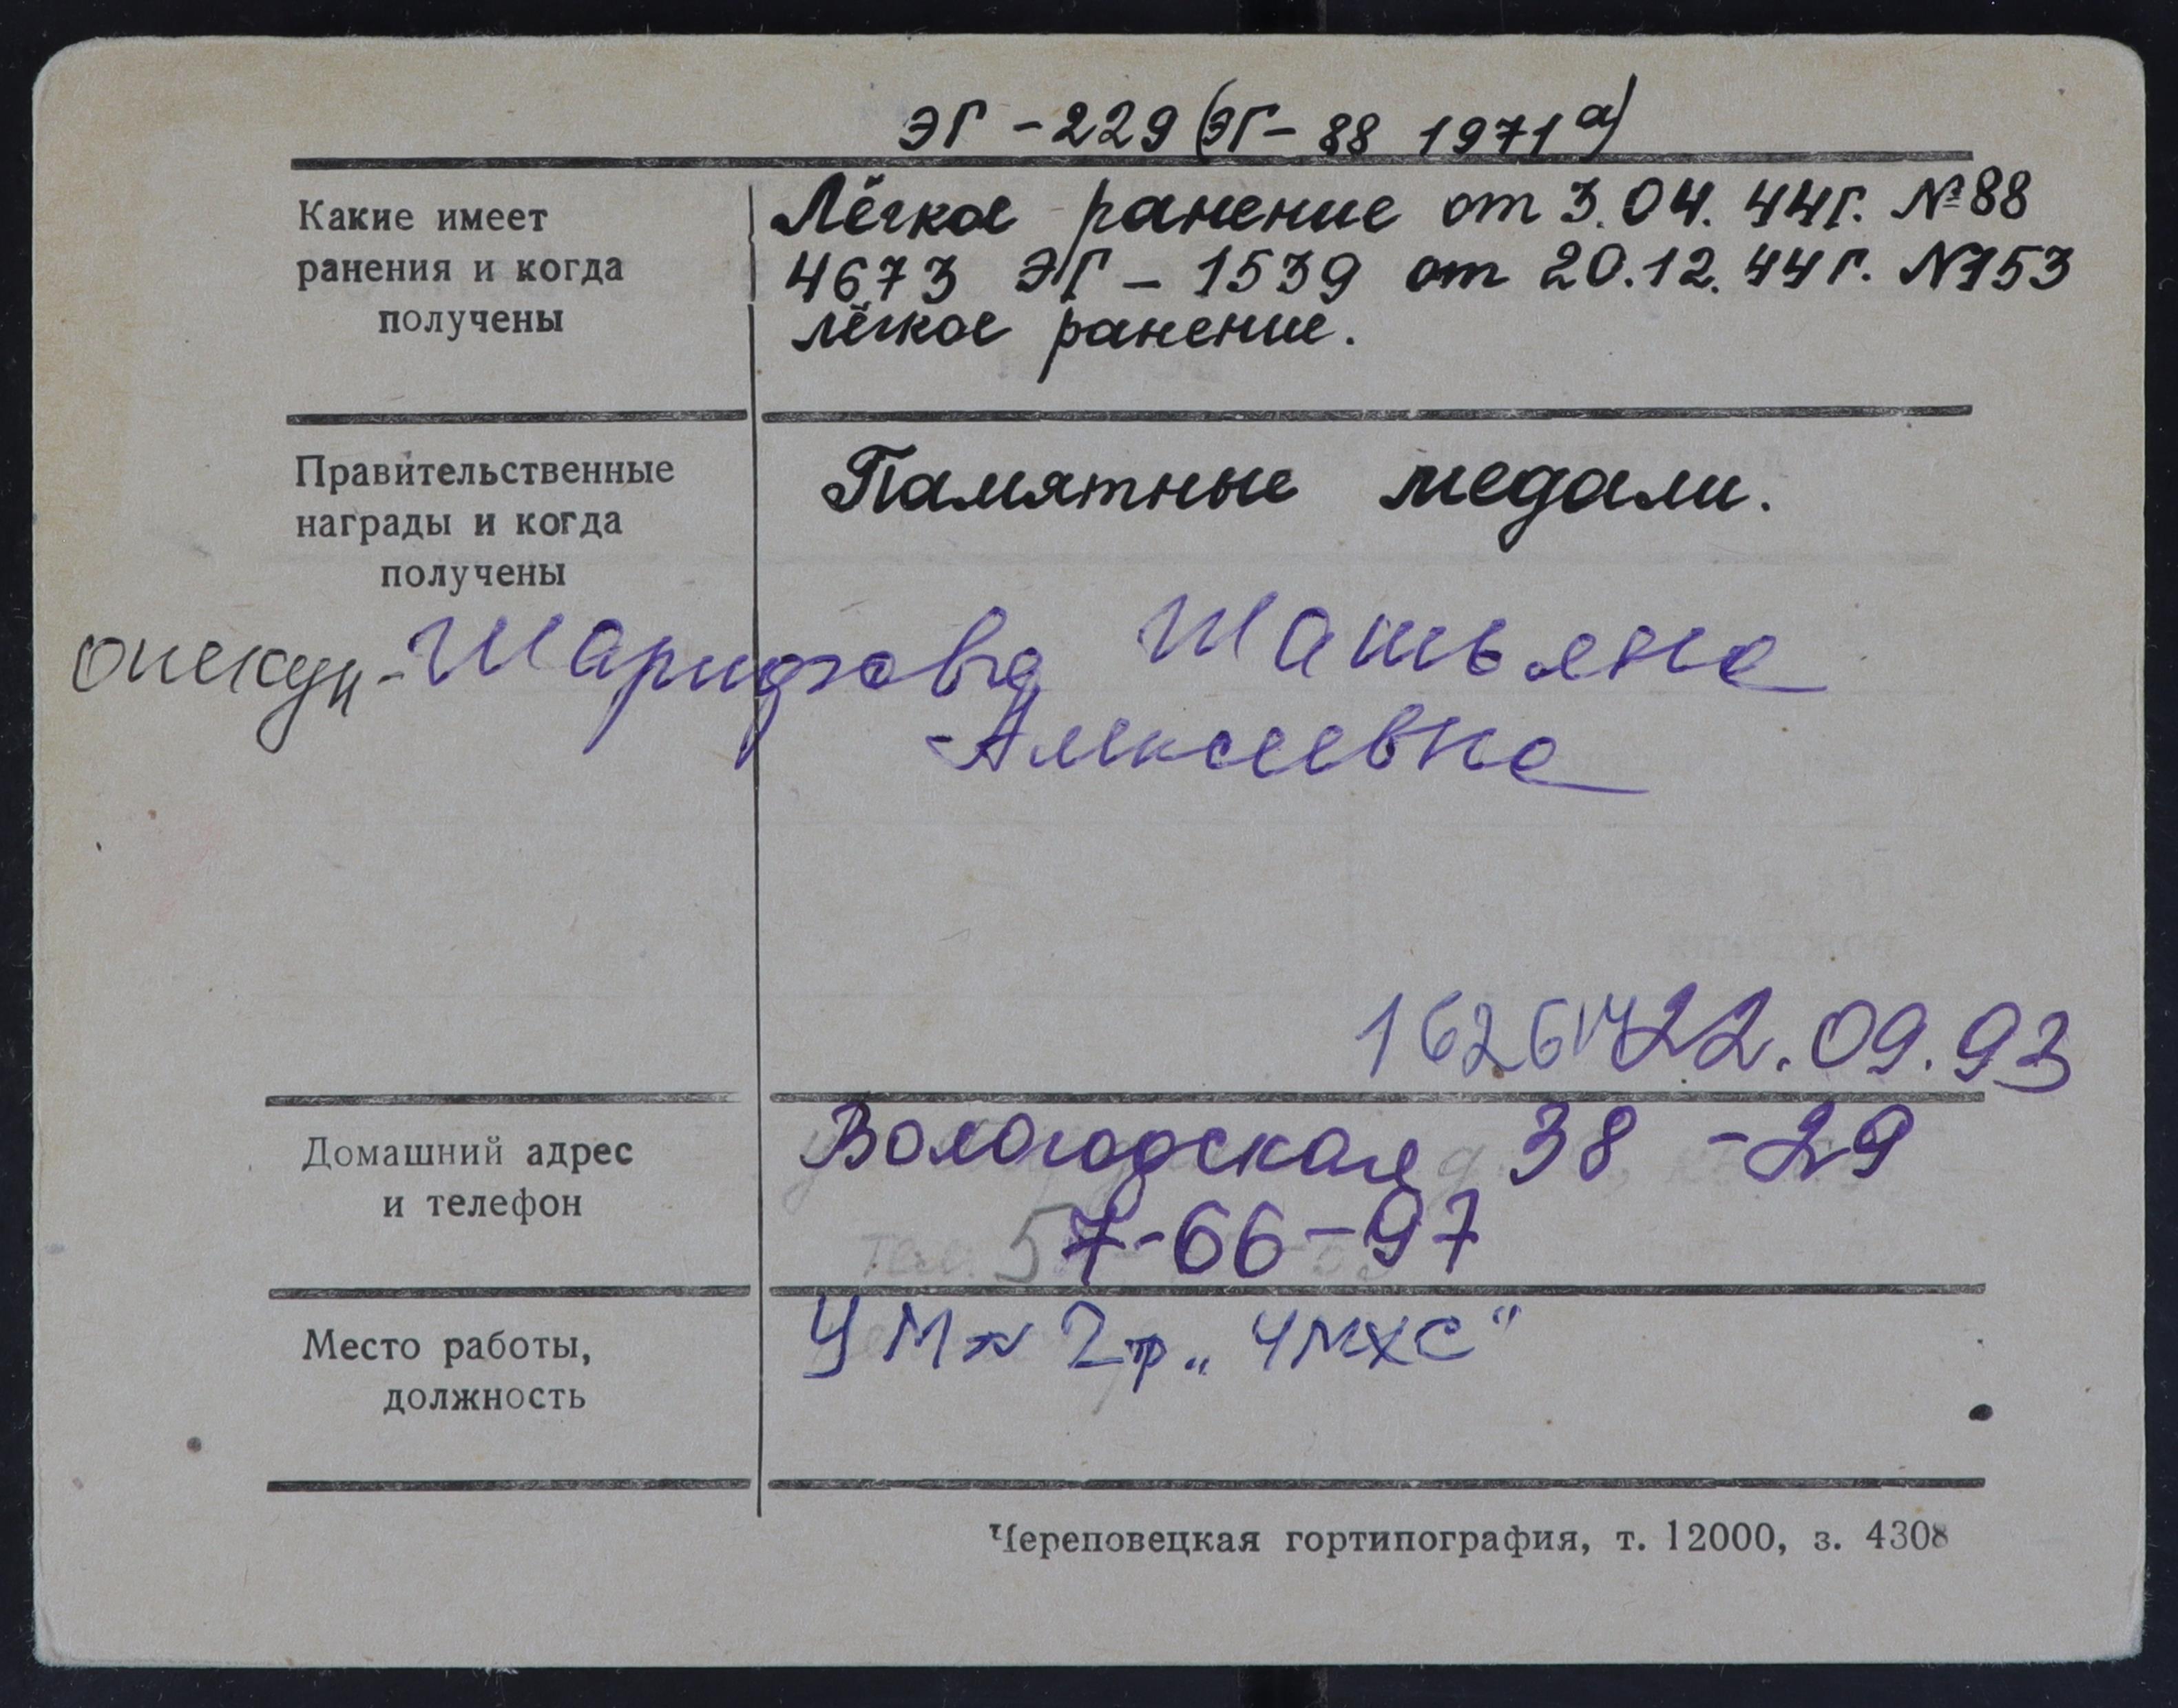 ЭГ - 229 (ЭГ - 88 1971 а)
Какие имеет
ранения и когда
получены
Лёгкое ранение от 3.04.44г. №88
4673 ЭГ - 1539 от 20.12.44г. №153
лёгкое ранение.
Правительственные
награды и когда
получены
Памятные медали.
опекун - Шарифова Татьяна
Алексеевна
22.09.93
Домашний адрес
и телефон
Вологодская 38 - 29
7-66-97
Место работы,
должность
УМ 2 тр „ЧМХС“
Череповецкая гортипография, т. 12000, з. 4308